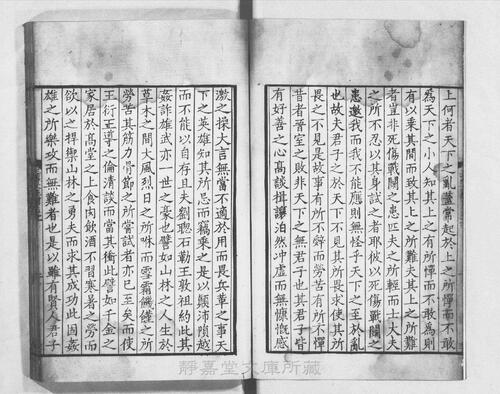 上何者天下之亂蓋常起於上之所憚而不敢
爲天下之小人知其上之有所憚而不敢爲則
有以乘其間而致其上之所難夫其上之所難
者豈非死傷戰鬭之患匹夫之所輕而士大夫
之所不忍以其身試之者耶彼以死傷戰鬭之
患邀我而我不能應則無怪乎天下之至於亂
也故夫君子之於天下不見其所畏求使其所
畏之不見是故事有所不辭而勞苦有所不憚
昔者晉室之敗非天下之無君子也其君子皆
有好善之心高談揖讓泊然冲虛而無慷慨感
激之操大言無當不適於用而畏兵革之事天
下之英雄知其所忌而竊乘之是以顛沛隕越
而不能以自存且夫劉聰石勒王敦祖約此其
姦詐雄武亦一世之豪也譬如山林之人生於
草木之間大風烈日之所咻而雪霜饑饉之所
勞苦其筋力骨節之所嘗試者亦已至矣而使
王衍王導之倫清談而當其衝此譬如千金之
家居於高堂之上食肉飲酒不習寒暑之勞而
欲以之捍禦山林之勇夫而求其成功此固姦
雄之所樂攻而無難者也是以雖有賢人君子
靜嘉堂文庫所藏